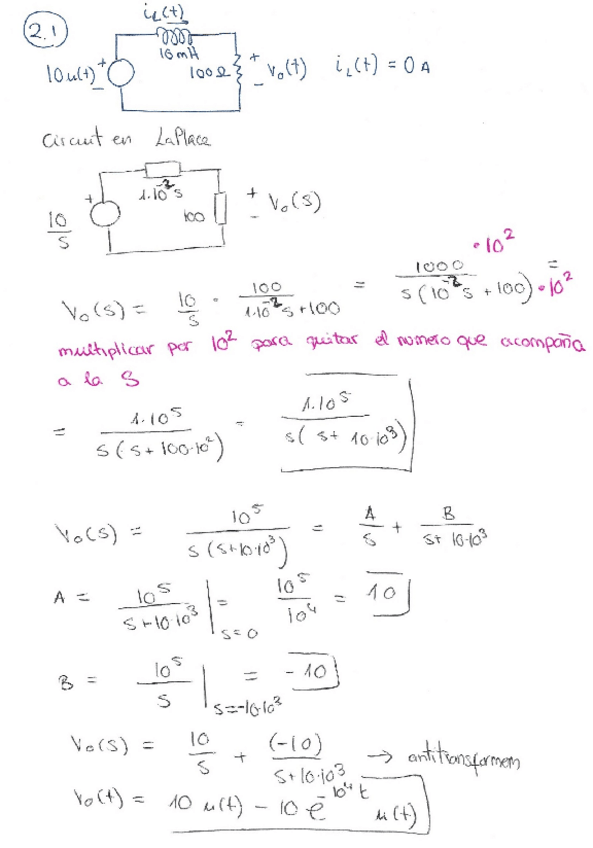 2.1
iL(t)
10 mH
10u(t) + - 100Ω + - Vo(t) iL(t) = 0 A
Circuit en LaPlace
1·10^-2 s
10/s + - 100 + - Vo(s)
Vo(s) = 10/s · 100/(1·10^-2 s + 100) = 1000 ·10^2 / (s(10^-2 s + 100) ·10^2) =
multiplicar por 10^2 para quitar el numero que acompaña
a la S
= 1·10^5 / (s(s + 100·10^2)) = 1·10^5 / (s(s + 10·10^3))
Vo(s) = 10^5 / (s(s+10·10^3)) = A/s + B/(s+ 10·10^3)
A = 10^5/(s+10·10^3) | s=0 = 10^5/10^4 = 10
B = 10^5/s | s=-10·10^3 = -10
Vo(s) = 10/s + (-10)/(s+10·10^3) → antitransformem
Vo(t) = 10 u(t) - 10 e^-10^4 t u(t)